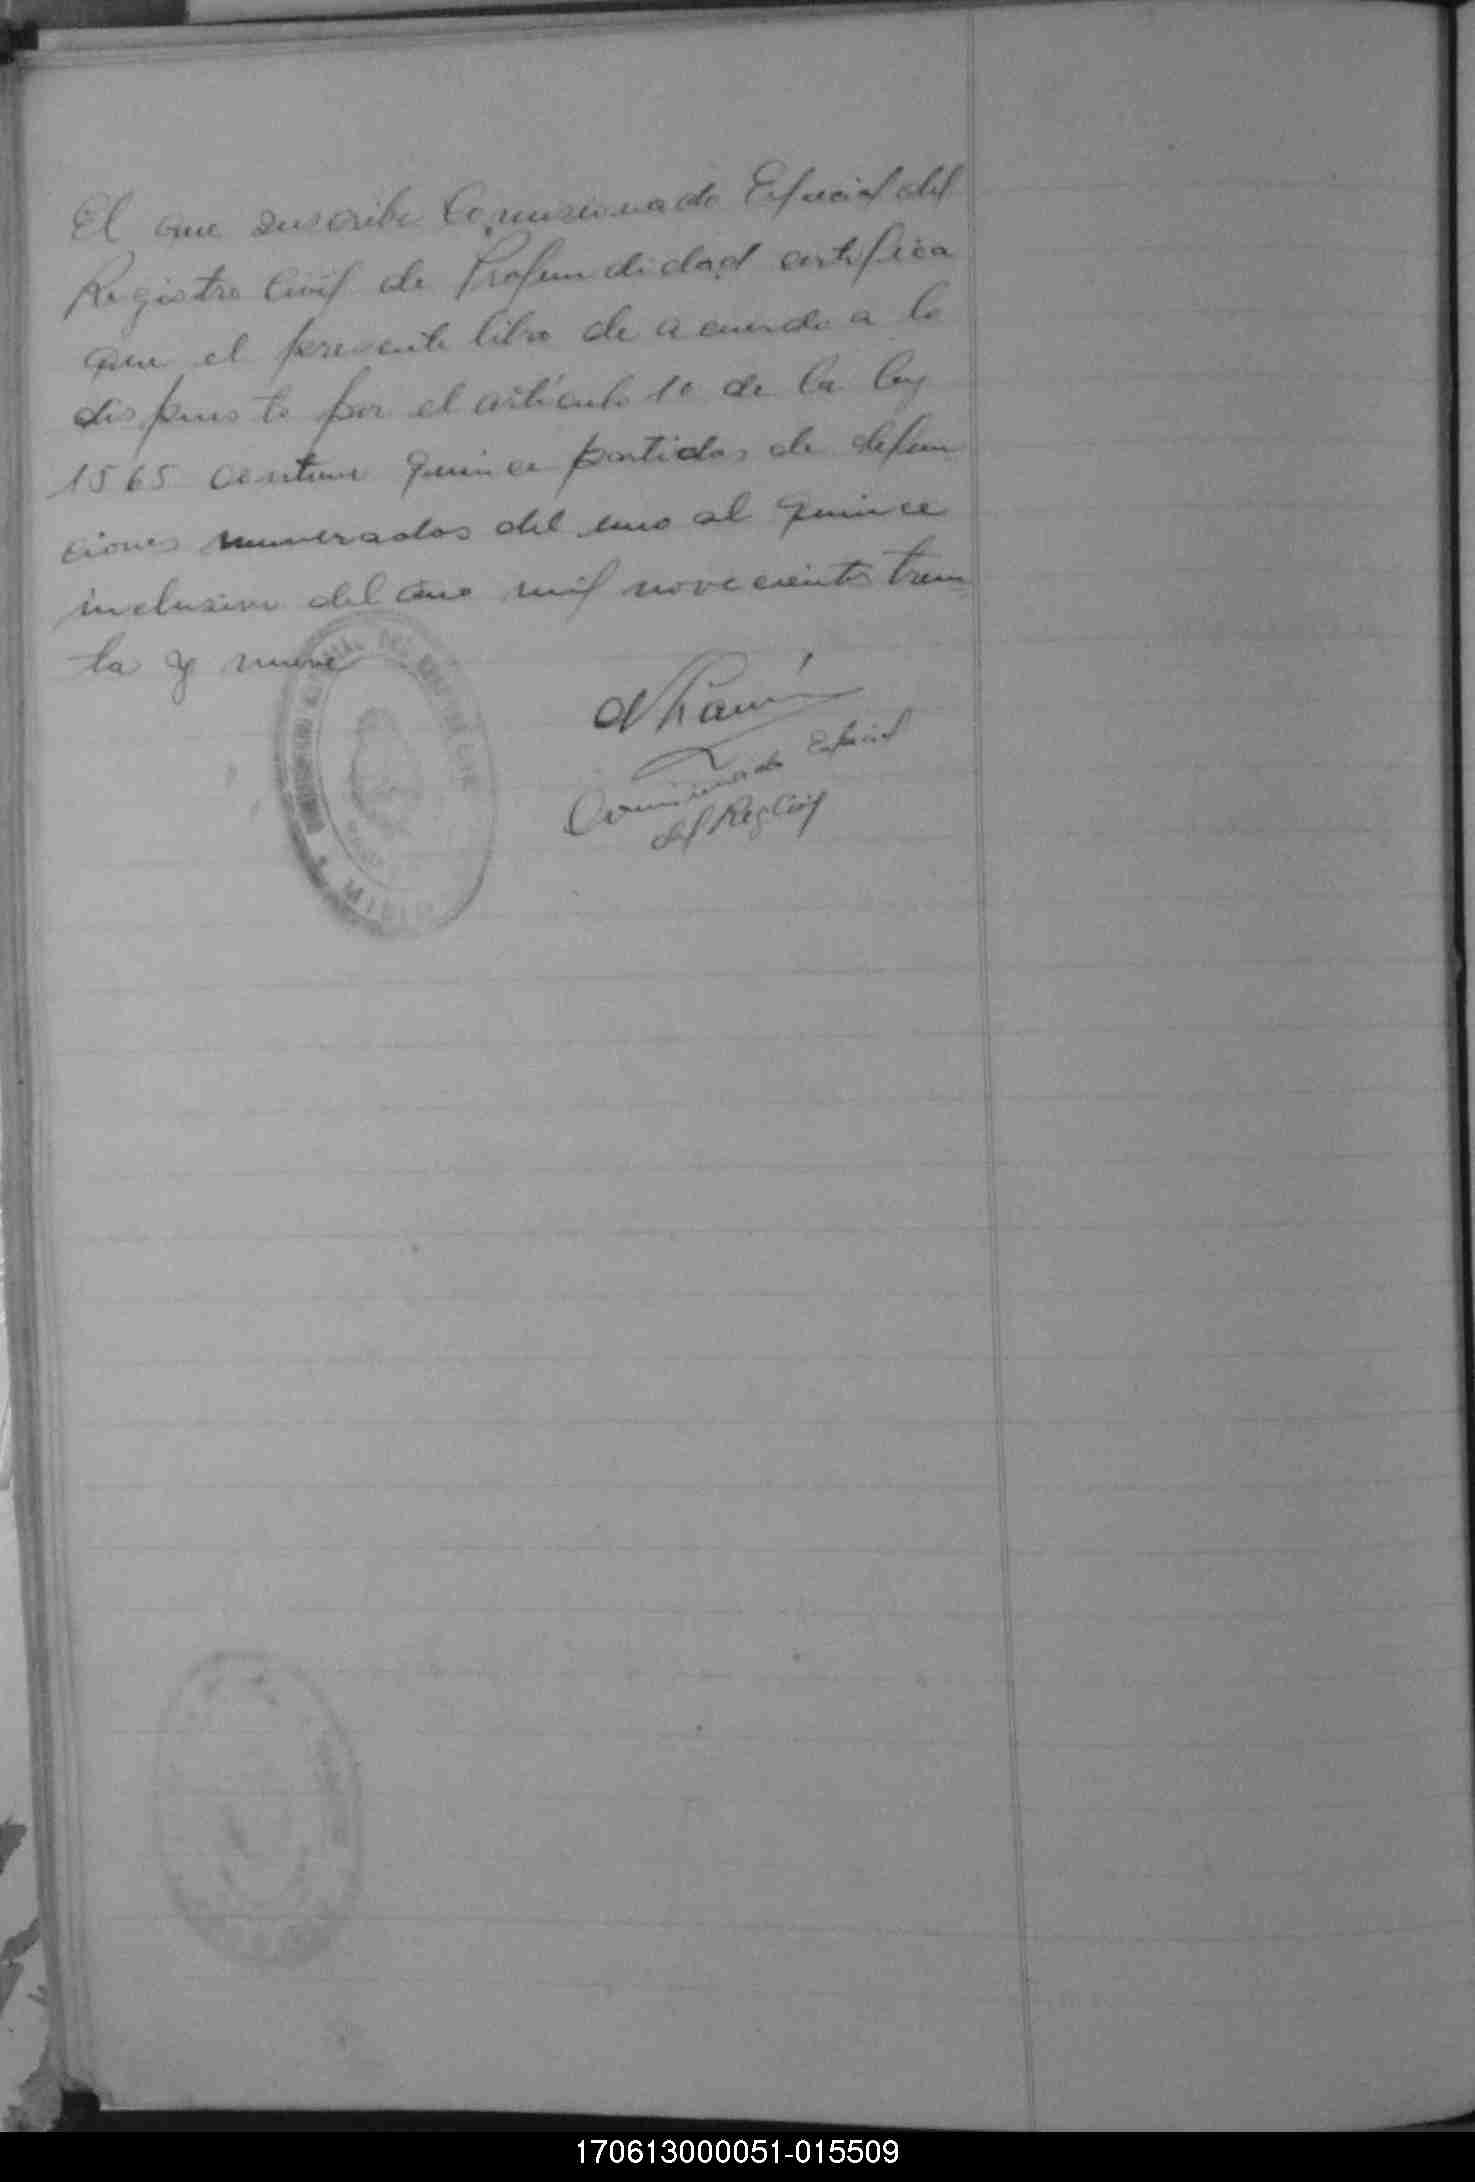 El que suscribe Comisionado Especial del
Registro Civil de Profundidad certifica
que el presente libro de acuerdo a lo
dispuesto por el artículo 10 de la ley
1565 contiene quince partidas de defun
ciones numeradas del uno al quince
inclusive del año mil novecientos trein
ta y nueve
Comisionado Especial
del Reg Civil
170613000051-015509